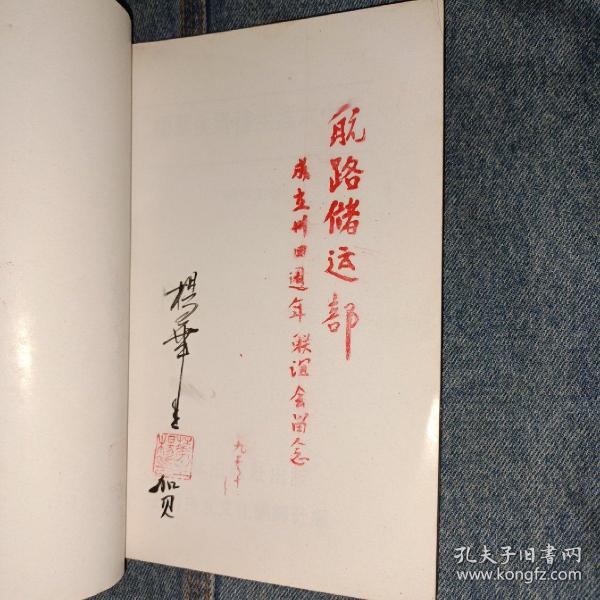 航路储运部
成立卅四週年联谊会留念
楊華生
贺
孔夫子旧书网
www.kongfz.com